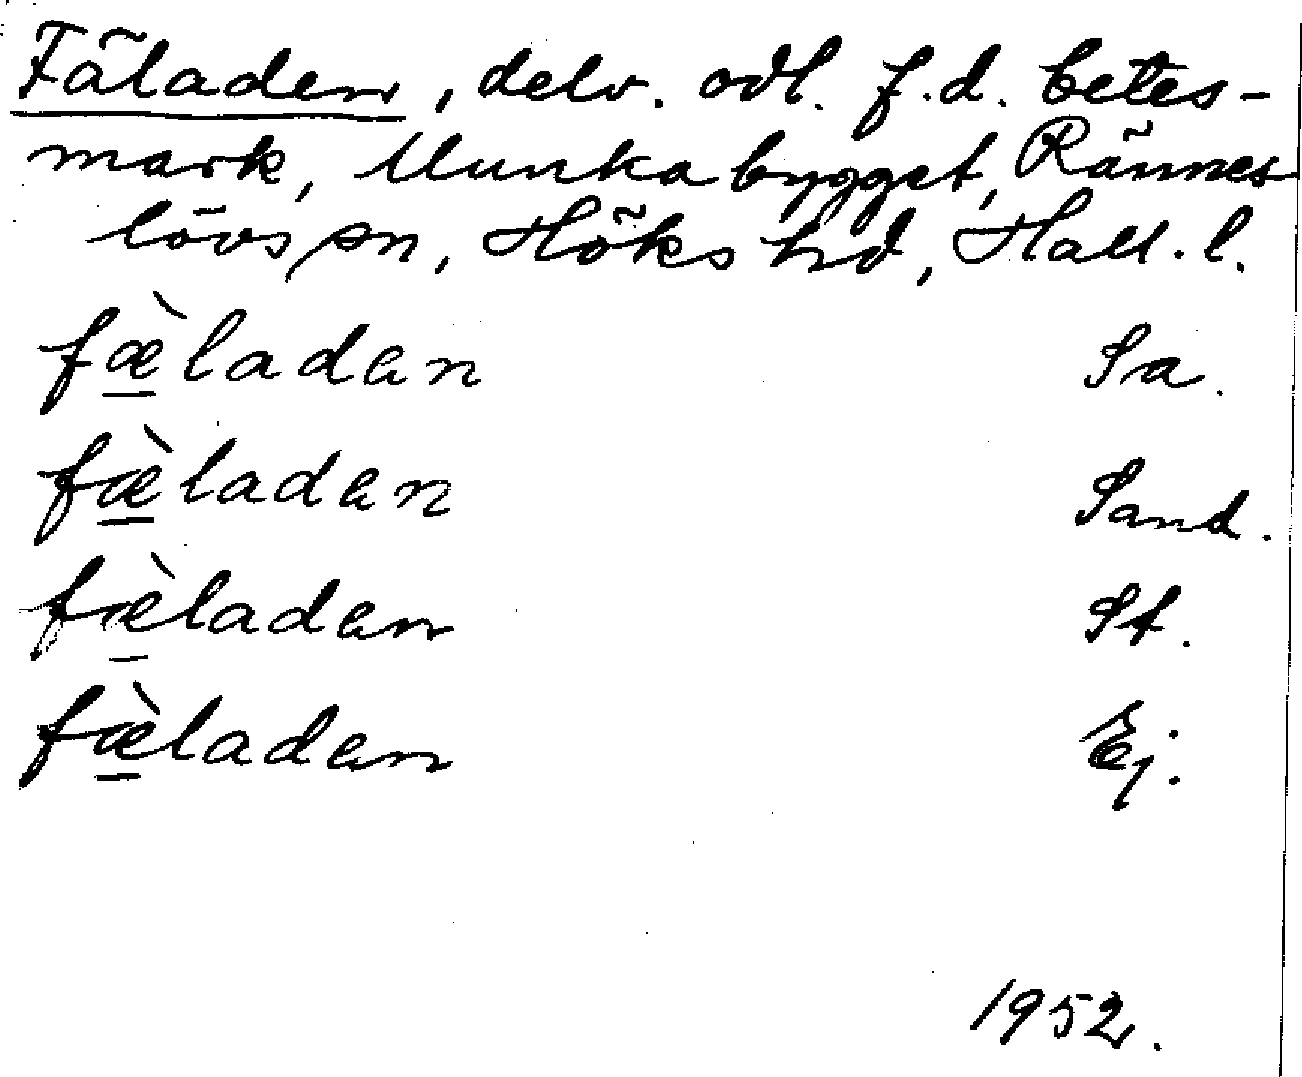 Fäladen, delv. odl. f.d. betes-
mark, Munkabygget, Rännes
lövs sn, Höks hd, Hall. l.
fæ̠̀ladan Sa.
fæ̠̀ladan Sand.
fæ̠̀ladan St.
fæ̠̀ladan Ej.
1952.